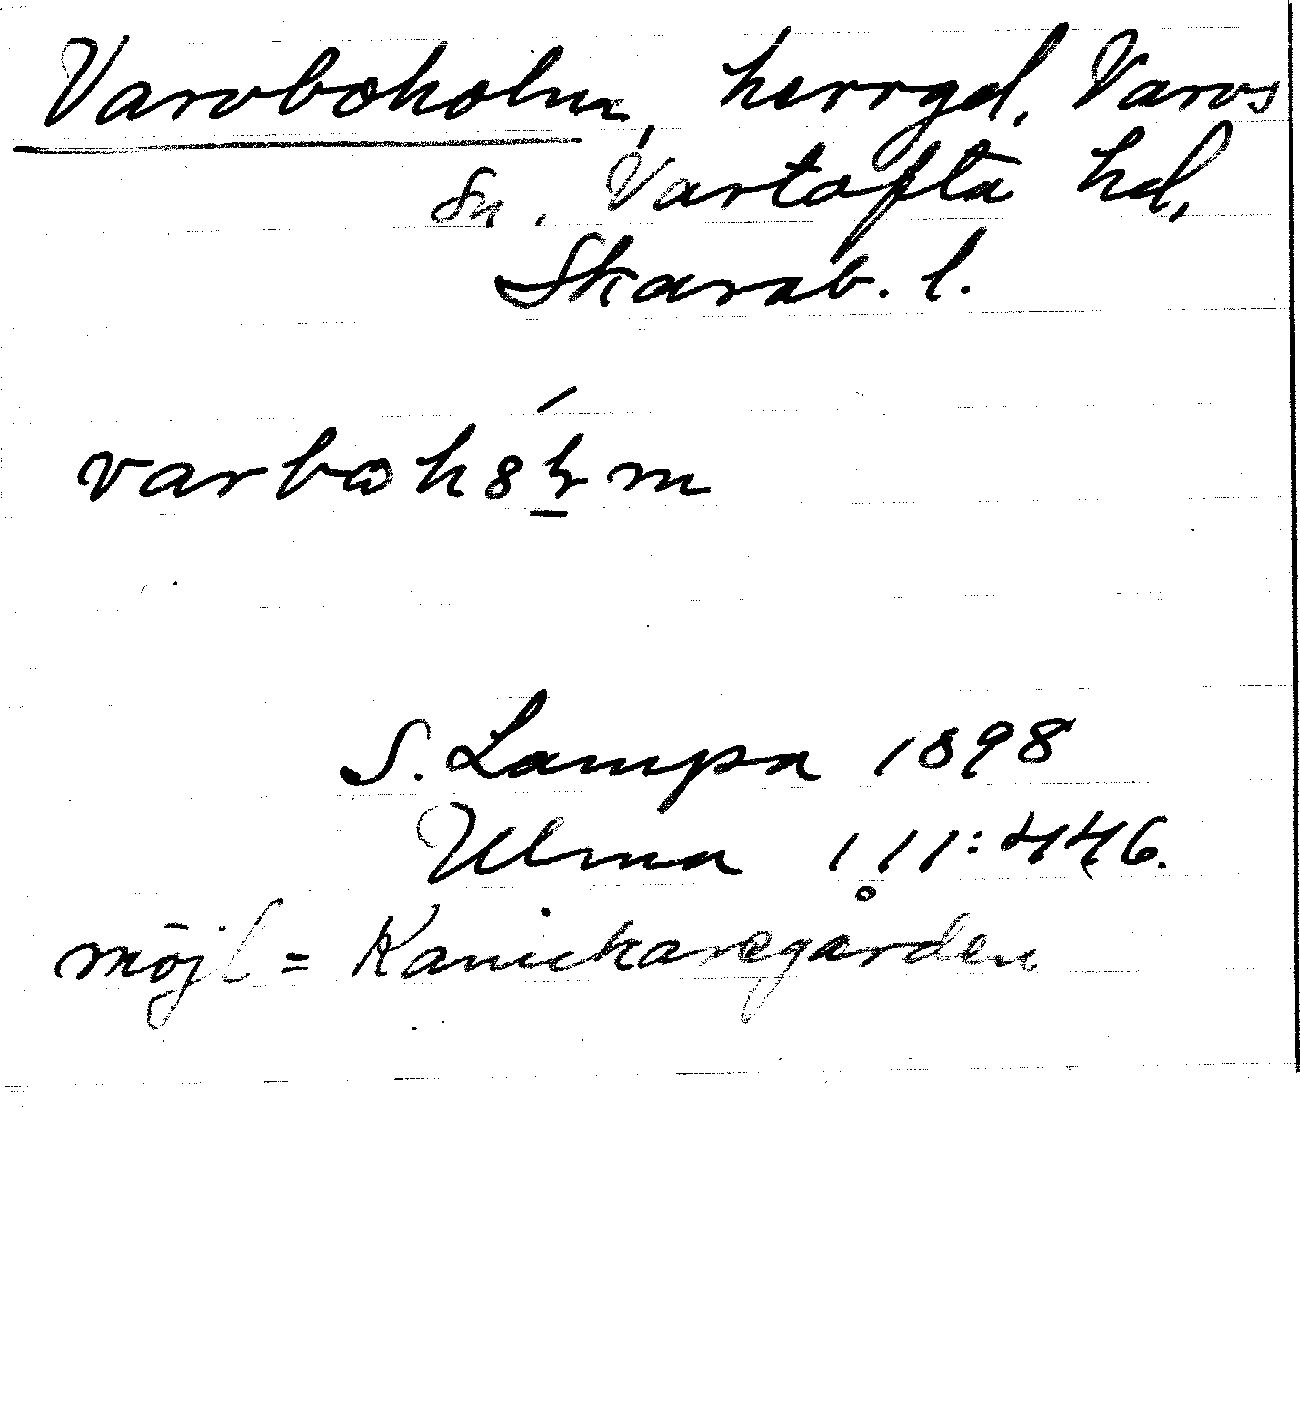 Varvboholm, herrgd, Varvs
sn. Vartofta hd,
Skarab. l.
S. Lampa 1898
Ulma 111:446.
möjl = Kanickaregården